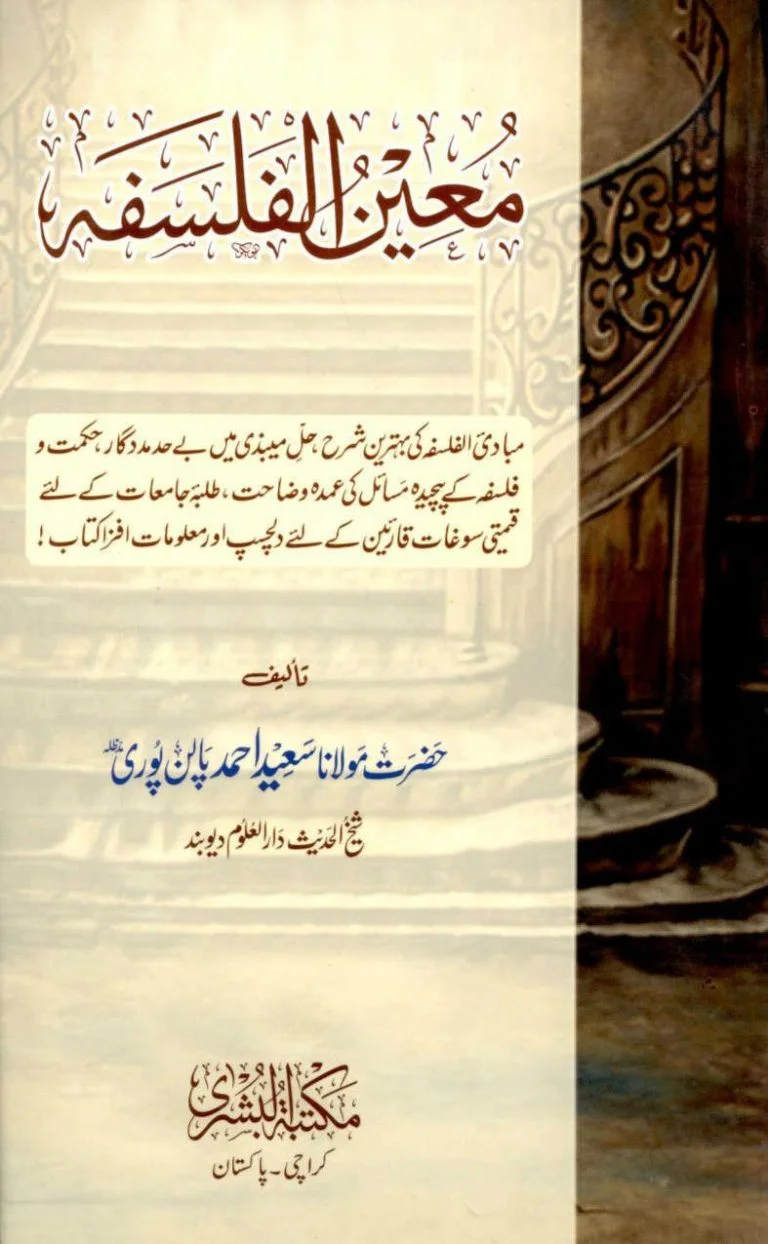 مُعِیْنُ الْفَلْسَفَہ
مبادئ الفلسفہ کی بہترین شرح، حلِ میبذی میں بے حد مددگار، حکمت و
فلسفہ کے پیچیدہ مسائل کی عمدہ وضاحت، طلبۂ جامعات کے لئے
قیمتی سوغات قارئین کے لئے دلچسپ اور معلومات افزا کتاب!
تألیف
حضرت مولانا سعید احمد پالن پوری مدظلہ
شیخ الحدیث دار العلوم دیوبند
مکتبۃ البشریٰ
کراچی - پاکستان